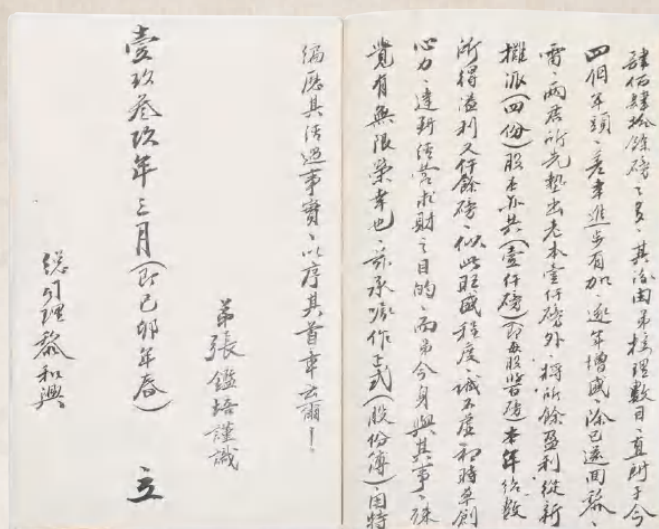 肆佰肆拾餘磅之多、其後由弟接理數目、直至于今
四個年頭、差幸進步有加、逐年增盛、除已送回黎
雷、兩君所先墊出老本壹仟磅外、將所餘盈利從新
攤派(四份)股本亦共(壹仟磅)即每股 本年結數
所得溢利又仟餘磅、似此旺盛程度、誠不虛初時草創
心力、達到經營求財之目的、而弟今身與其事、殊
覺有無限榮幸也、茲承囑作正式(股份簿)、因特
編歷其經過事實、以序其首章云爾！
弟張鑑培謹識
壹玖叁玖年三月(即己卯年春) 立
總司理黎和興